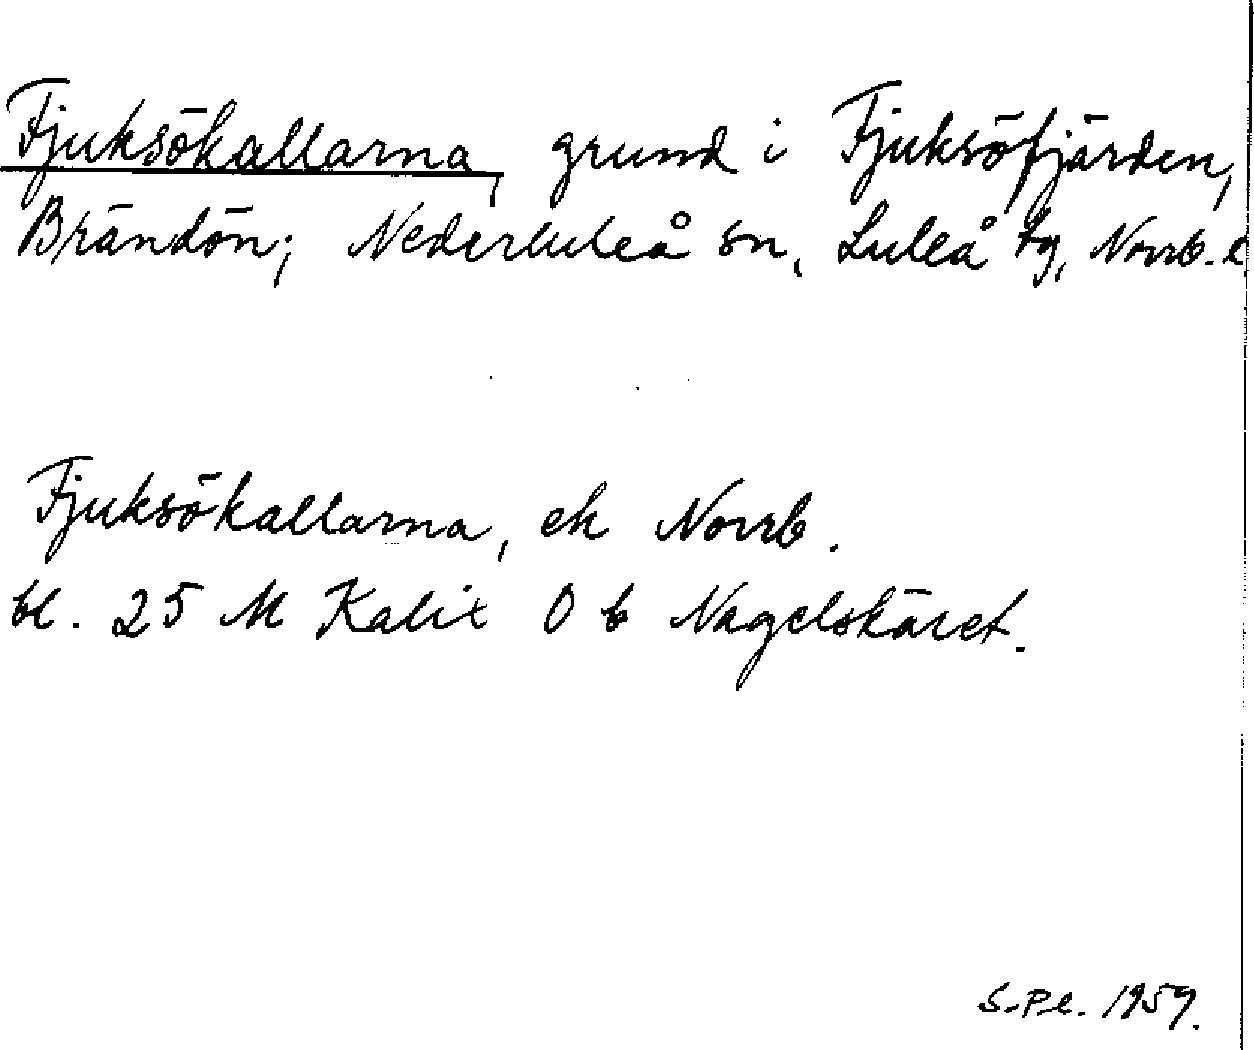 Fjuksökallarna, grund i Fjuksöfjärden,
Brändön; Nederluleå sn, Luleå tg, Norrb. l
Fjuksökallarna, ek Norrb.
bl. 25 M Kalix O b Nagelskäret.
S. Pl. 1959.